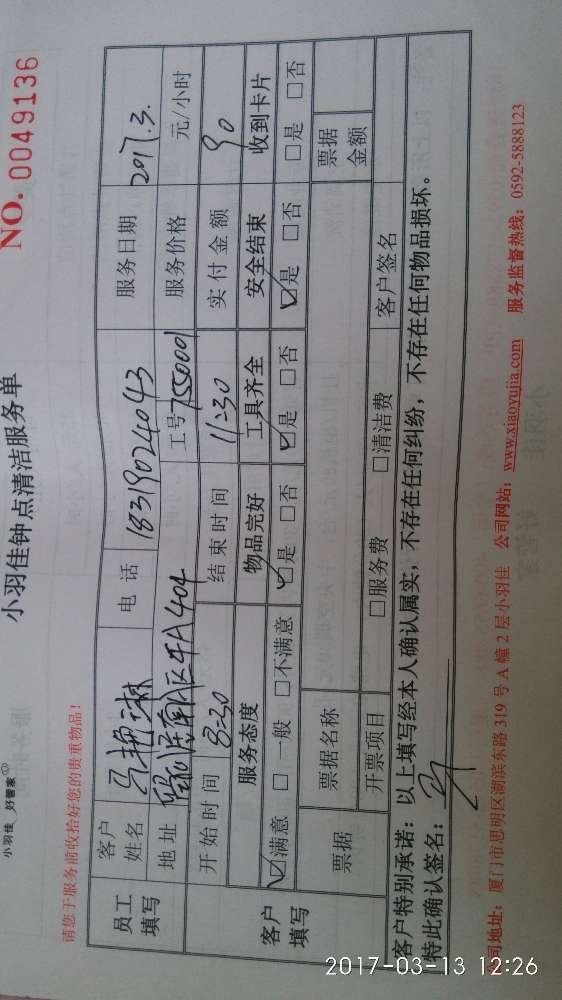 小羽佳 好管家
小羽佳钟点清洁服务单
NO. 0049136
请您于服务前收拾好您的贵重物品!
员工填写 客户姓名 电话 18319024043 服务日期 2017.3.
地址 404 工号 服务价格 元/小时
客户填写 开始时间 8:30 结束时间 11:30 实付金额 90
服务态度 物品完好 工具齐全 安全结束 收到卡片
☑满意 □一般 □不满意 ☑是 □否 ☑是 □否 ☑是 □否 □是 □否
票据 票据名称 票据金额
开票项目 □服务费 □清洁费 客户签名
客户特别承诺:以上填写经本人确认属实,不存在任何纠纷,不存在任何物品损坏。
特此确认签名:
司地址:厦门市思明区湖滨东路 319 号 A 幢 2 层小羽佳 公司网站:www.xiaoyujia.com 服务监督热线:0592-5888123
2017-03-13 12:26